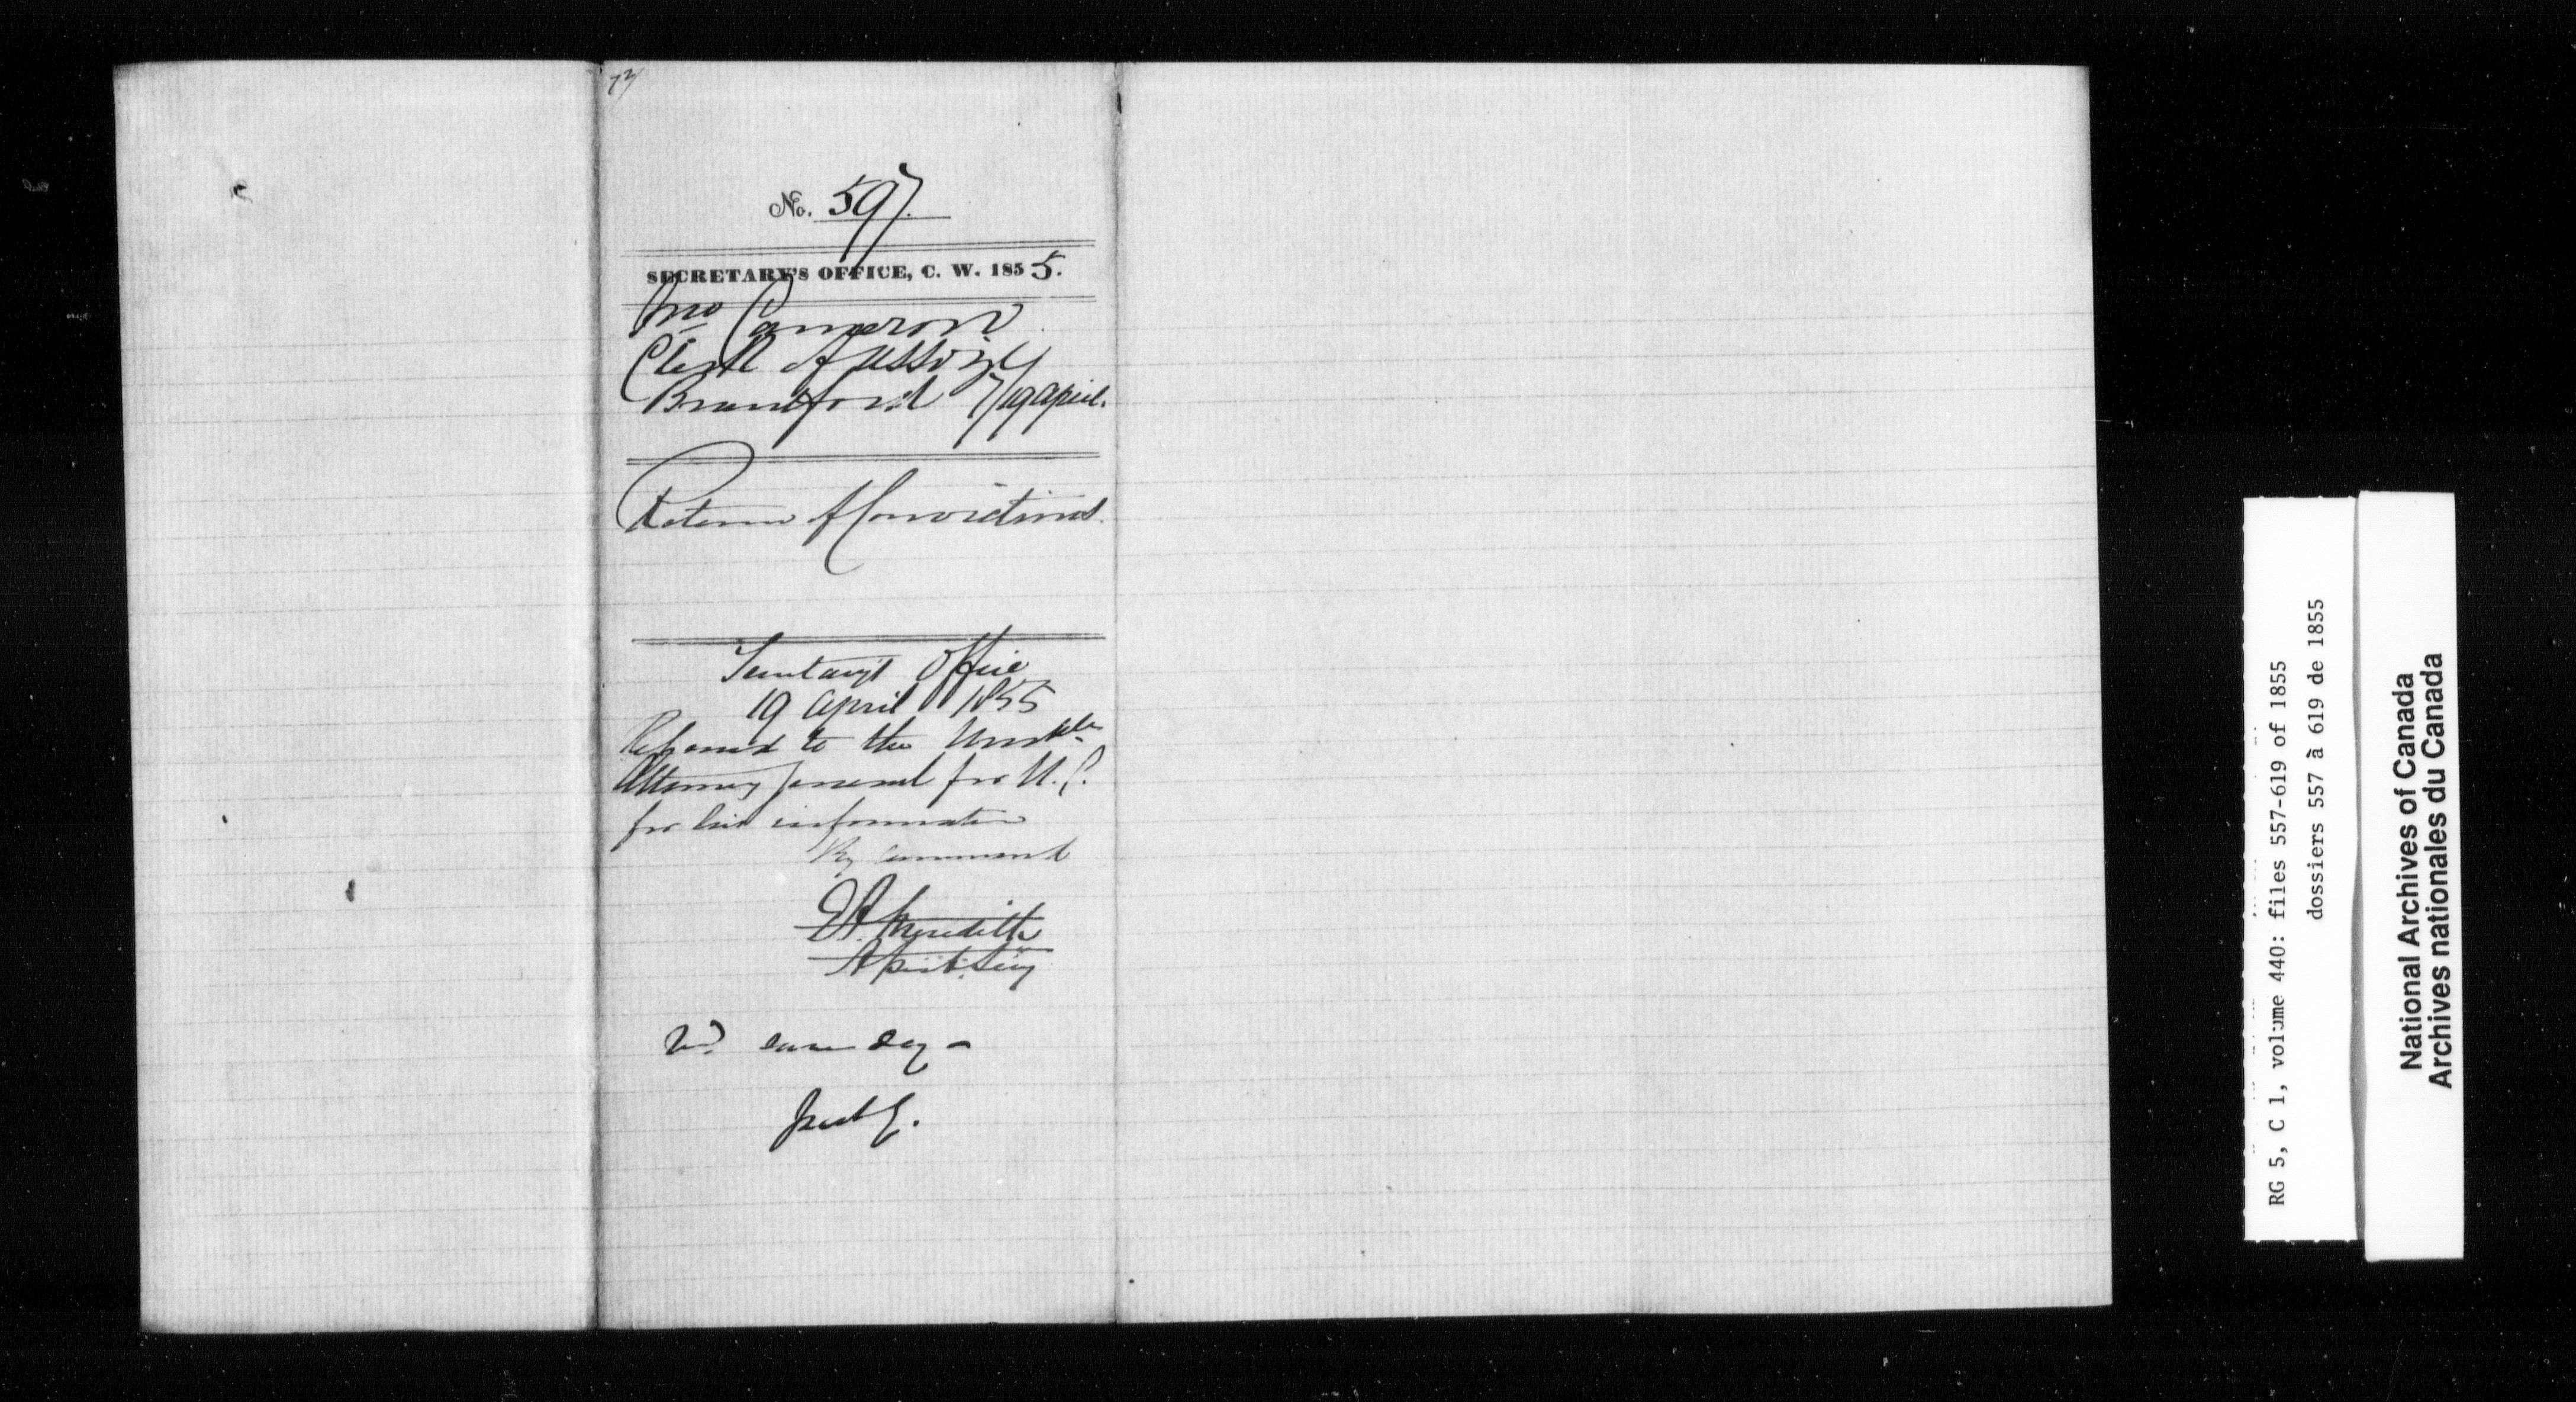 No. 597.
SECRETARY'S OFFICE, C. W. 1855.
Jno Cameron
Clerk of Assize
Brantford 7/19 April.
Return of Convictions.
Secretary's Office
19 April 1855
Referred to the Honble
Attorney General for U.C.
for his information
By Command
E A Meredith
Asist. Secy
same day -
RG 5, C 1, volume 440: files 557-619 of 1855
dossiers 557 à 619 de 1855
National Archives of Canada
Archives nationales du Canada